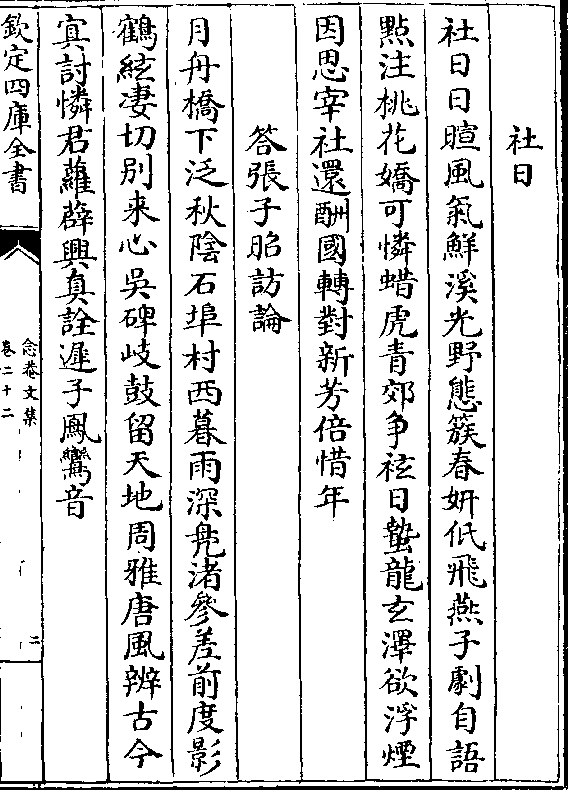 社日
社日日暄風氣鮮溪光野態簇春妍低飛燕子劇自語
點注桃花嬌可憐蜡虎青郊争祛日蟄龍玄澤欲浮煙
因思宰社還酬國轉對新芳倍惜年
答張子昭訪論
月舟橋下泛秋陰石埠村西暮雨深鳧渚參差前度影
鶴絃凄切別来心吳碑岐鼓留天地周雅唐風辨古今
寘討憐君蘿薜興真詮遲子鳳鸞音
欽定四庫全書
念菴文集
卷二十二
二